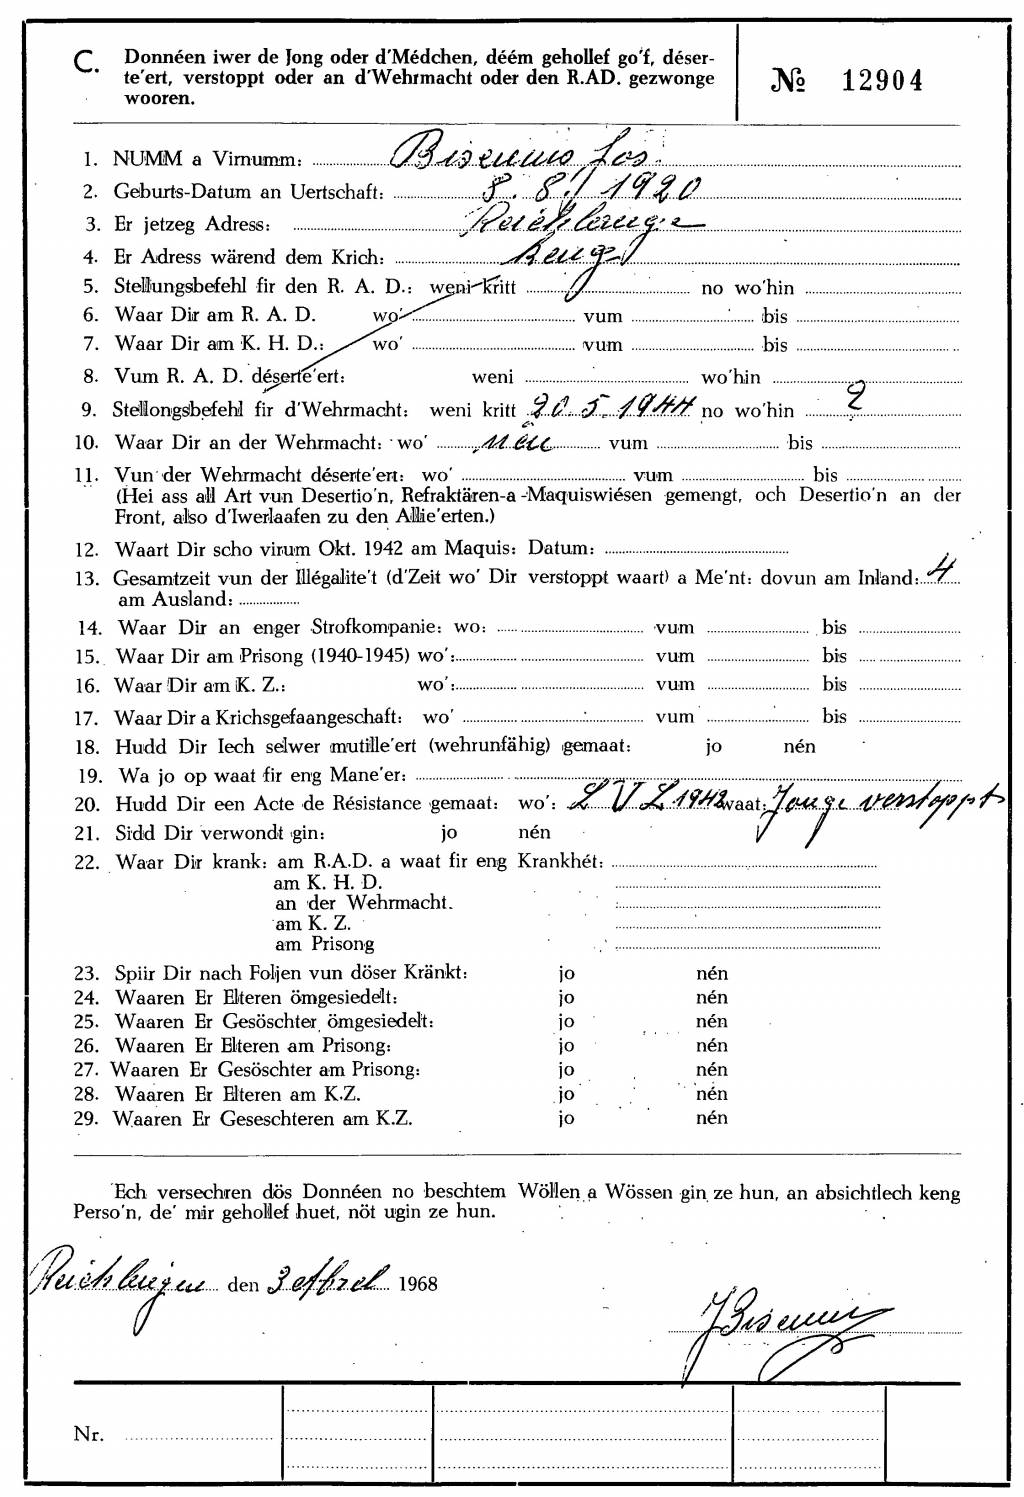 C. Donnéen iwer de Jong oder d'Médchen, déém gehollef go'f, déser-
te'ert, verstoppt oder an d'Wehrmacht oder den R.AD. gezwonge
wooren.
№ 12904
1. NUMM a Virnumm: Jos.
2. Geburts-Datum an Uertschaft: 8. 8. 1920
3. Er jetzeg Adress:
4. Er Adress wärend dem Krich:
5. Stellungsbefehl fir den R. A. D.: weni kritt no wo'hin
6. Waar Dir am R. A. D. wo' vum bis
7. Waar Dir am K. H. D.: wo' vum bis
8. Vum R. A. D. déserte'ert: weni wo'hin
9. Stellongsbefehl fir d'Wehrmacht: weni kritt 20. 5. 1944 no wo'hin ?
10. Waar Dir an der Wehrmacht: wo' nén vum bis
11. Vun der Wehrmacht déserte'ert: wo' vum bis
(Hei ass all Art vun Desertio'n, Refraktären-a-Maquiswiésen gemengt, och Desertio'n an der
Front, also d'Iwerlaafen zu den Allie'erten.)
12. Waart Dir scho virum Okt. 1942 am Maquis: Datum:
13. Gesamtzeit vun der Illégalite't (d'Zeit wo' Dir verstoppt waart) a Me'nt: dovun am Inland: 4
am Ausland:
14. Waar Dir an enger Strofkompanie: wo: vum bis
15. Waar Dir am Prisong (1940-1945) wo': vum bis
16. Waar Dir am K. Z.: wo': vum bis
17. Waar Dir a Krichsgefaangeschaft: wo' vum bis
18. Hudd Dir Iech selwer mutille'ert (wehrunfähig) gemaat: jo nén
19. Wa jo op waat fir eng Mane'er:
20. Hudd Dir een Acte de Résistance gemaat: wo': L V L 1942 waat: Jonge verstoppt
21. Sidd Dir verwondt gin: jo nén
22. Waar Dir krank: am R.A.D. a waat fir eng Krankhét:
am K. H. D.
an der Wehrmacht.
am K. Z.
am Prisong
23. Spiir Dir nach Foljen vun döser Kränkt: jo nén
24. Waaren Er Elteren ömgesiedelt: jo nén
25. Waaren Er Gesöschter ömgesiedelt: jo nén
26. Waaren Er Elteren am Prisong: jo nén
27. Waaren Er Gesöschter am Prisong: jo nén
28. Waaren Er Elteren am K.Z. jo nén
29. Waaren Er Geseschteren am K.Z. jo nén
Ech versechren dös Donnéen no beschtem Wöllen a Wössen gin ze hun, an absichtlech keng
Perso'n, de' mir gehollef huet, nöt ugin ze hun.
den 3 1968
Nr.